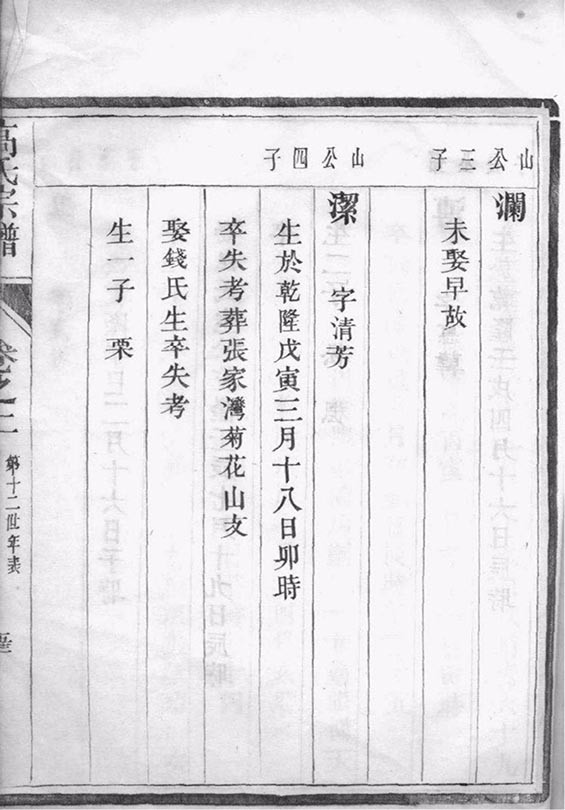 山公三子
瀾
未娶早故
山公四子
潔 字清芳
生於乾隆戊寅三月十八日卯時
卒失考葬張家灣菊花山
娶錢氏生卒失考
生一子 栗
高氏宗譜
卷之二
第十二世年表